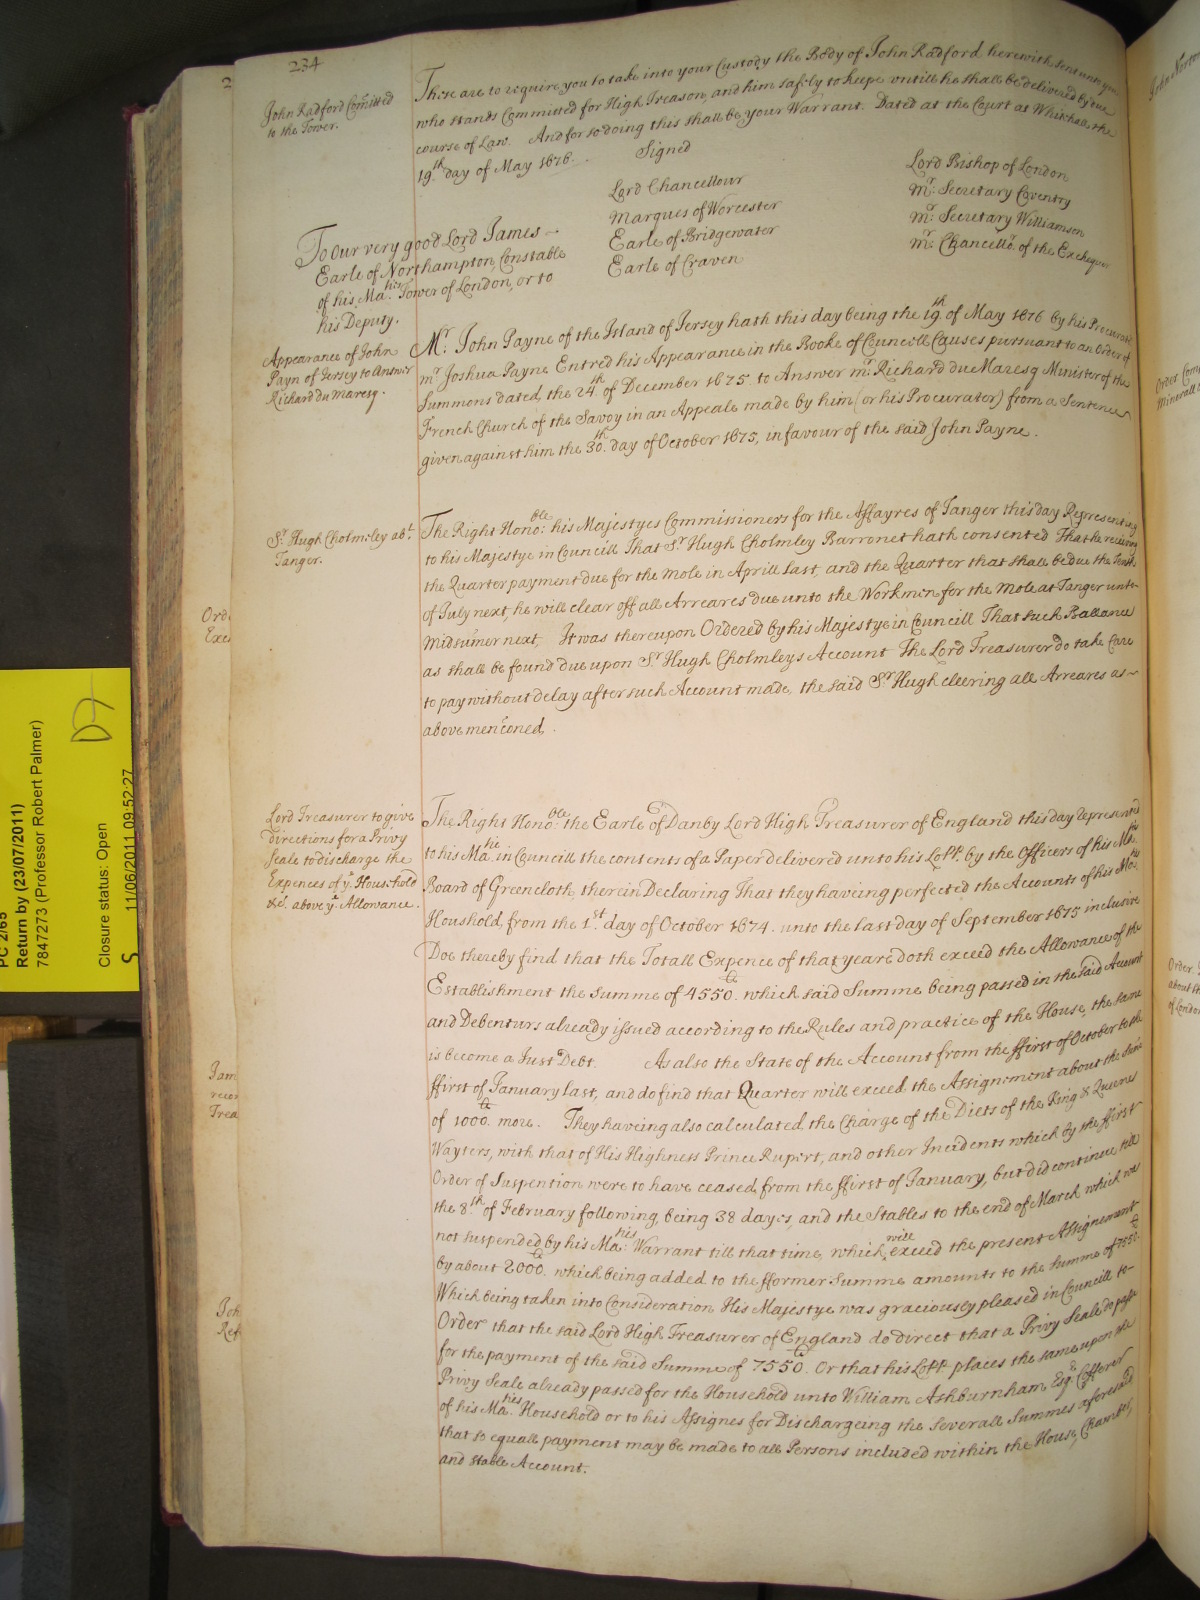 234
John Radford Com̃itted
to the Tower.
These are to require you to take into your Custody the Body of John Radford herewith sent unto you
who stands Committed for High Treason, and him safely to keepe untill he shall be delivered by due
course of Law. And for so doing this shall be your Warrant. Dated at the Court at Whitehall the
19th day of May 1676.
Signed
Lord Chancellour
Marques of Worcester
Earle of Bridgewater
Earle of Craven
Lord Bishop of London
Mr. Secretary Coventry
Mr. Secretary Williamson
Mr. Chancellr. of the Exchequer
To our very good Lord James
Earle of Northampton, Constable
of his Matie's Tower of London, or to
his Deputy.
Appearance of John
Payn of Jersey to Answer
Richard du Maresq.
Mr. John Payne of the Island of Jersey hath this day being the 19th of May 1676 by his Procurator
mr Joshua Payne Entred his Appearance in the Booke of Councill Causes pursuant to an Order of
Summons dated the 24th of December 1675. to Answer mr. Richard du Maresq Minister of the
French Church of the Savoy in an Appeale made by him (or his Procurator) from a Sentence
given against him the 30th. day of October 1675, in favour of the said John Payne.
Sr. Hugh Cholmley abt.
Tanger.
The Right Honoble: his Majestyes Commissioners for the Affayres of Tanger this day Representing
to his Majestye in Councill That Sr. Hugh Cholmley Barronet hath consented That he receiving
the Quarter payment due for the Mole in Aprill last, and the Quarter that shall be due the Tenth
of July next, he will clear off all Arreares due unto the Workmen for the Mole at Tanger untill
Midsum̃er next, It was thereupon Ordered by his Majestye in Councill That such Ballance
as shall be found due upon Sr. Hugh Cholmleys Account The Lord Treasurer do take Care
to pay without delay after such Account made, the said Sr. Hugh cleering all Arreares as
above menc̃oned.
Lord Treasurer to give
directions for a Privy
Seale to discharge the
Expences of ye. Houshold
&c. above ye. Allowance.
The Right Honoble: the Earle of Danby Lord High Treasurer of England this day Represented
to his Matie. in Councill the contents of a Paper delivered unto his Lopp. by the Officers of his Mats
Board of Greencloth, therein Declaring That they haveing perfected the Accounts of his Mats.
Houshold, from the 1.st day of October 1674. unto the last day of September 1675 inclusive
Doe thereby find that the Totall Expence of that yeare doth exceed the Allowance of the
Establishment the Summe of 4550li. which said Summe being passed in the said Account
and Debenturs already issued according to the Rules and practice of the House, the same
is become a Just Debt. As also the State of the Account from the ffirst of October to the
ffirst of January last, and do find that Quarter will exceed the Assignement about the sume
of 1000li. more. They haveing also calculated the Charge of the Diets of the King & Queenes
Wayters, with that of His Highness Prince Rupert, and other Incidents which by the ffirst
Order of Suspention were to have ceased from the ffirst of January, but did continue till
the 8th of February following, being 38 dayes, and the Stables to the end of March which was
not suspended by his Matis: Warrant till that time, which will exceed the present Assignement
by about 2000li. which being added to the fformer Summe amounts to the Summe of 7550li.
Which being taken into Consideration His Majestye was graciously pleased in Councill to
Order that the said Lord High Treasurer of England do direct that a Privy Seale do passe
for the payment of the said Summe of 7550li. Or that his Lopp. places the same upon the
Privy Seale already passed for the Household unto William Ashburnham Esqr. Cofferer
of his Maties. Household or to his Assignes for Dischargeing the severall Summes aforesaid
that so equall payment may be made to all Persons included within the House, Chamber,
and Stable Account.
PC 2/65
Return by (23/07/2011)
7847273 (Professor Robert Palmer)
Closure status: Open
S 11/06/2011 09:52:27
D7